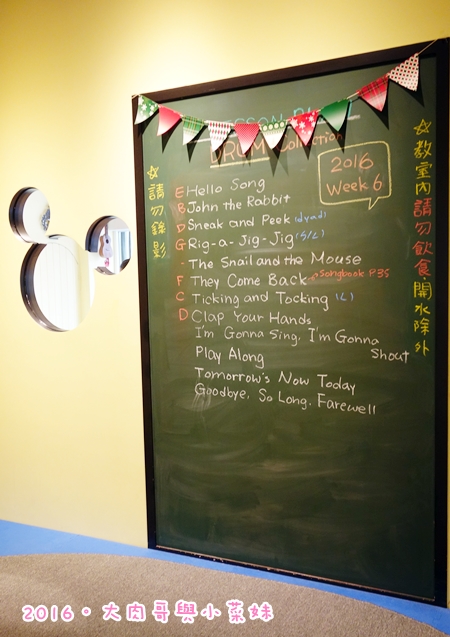 LESSON PLAN
DRUM Collection
2016
Week 6
☆請勿錄影
☆教室內請勿飲食.開水除外
E Hello Song
B John the Rabbit
D Sneak and Peek (dyad)
G Rig-a-Jig-Jig (S/L)
- The Snail and the Mouse
F They Come Back → Songbook P35
C Ticking and Tocking (L)
D Clap Your Hands
I'm Gonna Sing, I'm Gonna
Shout
Play Along
Tomorrow's Now Today
Goodbye, So Long, Farewell
2016。大肉哥與小菜妹